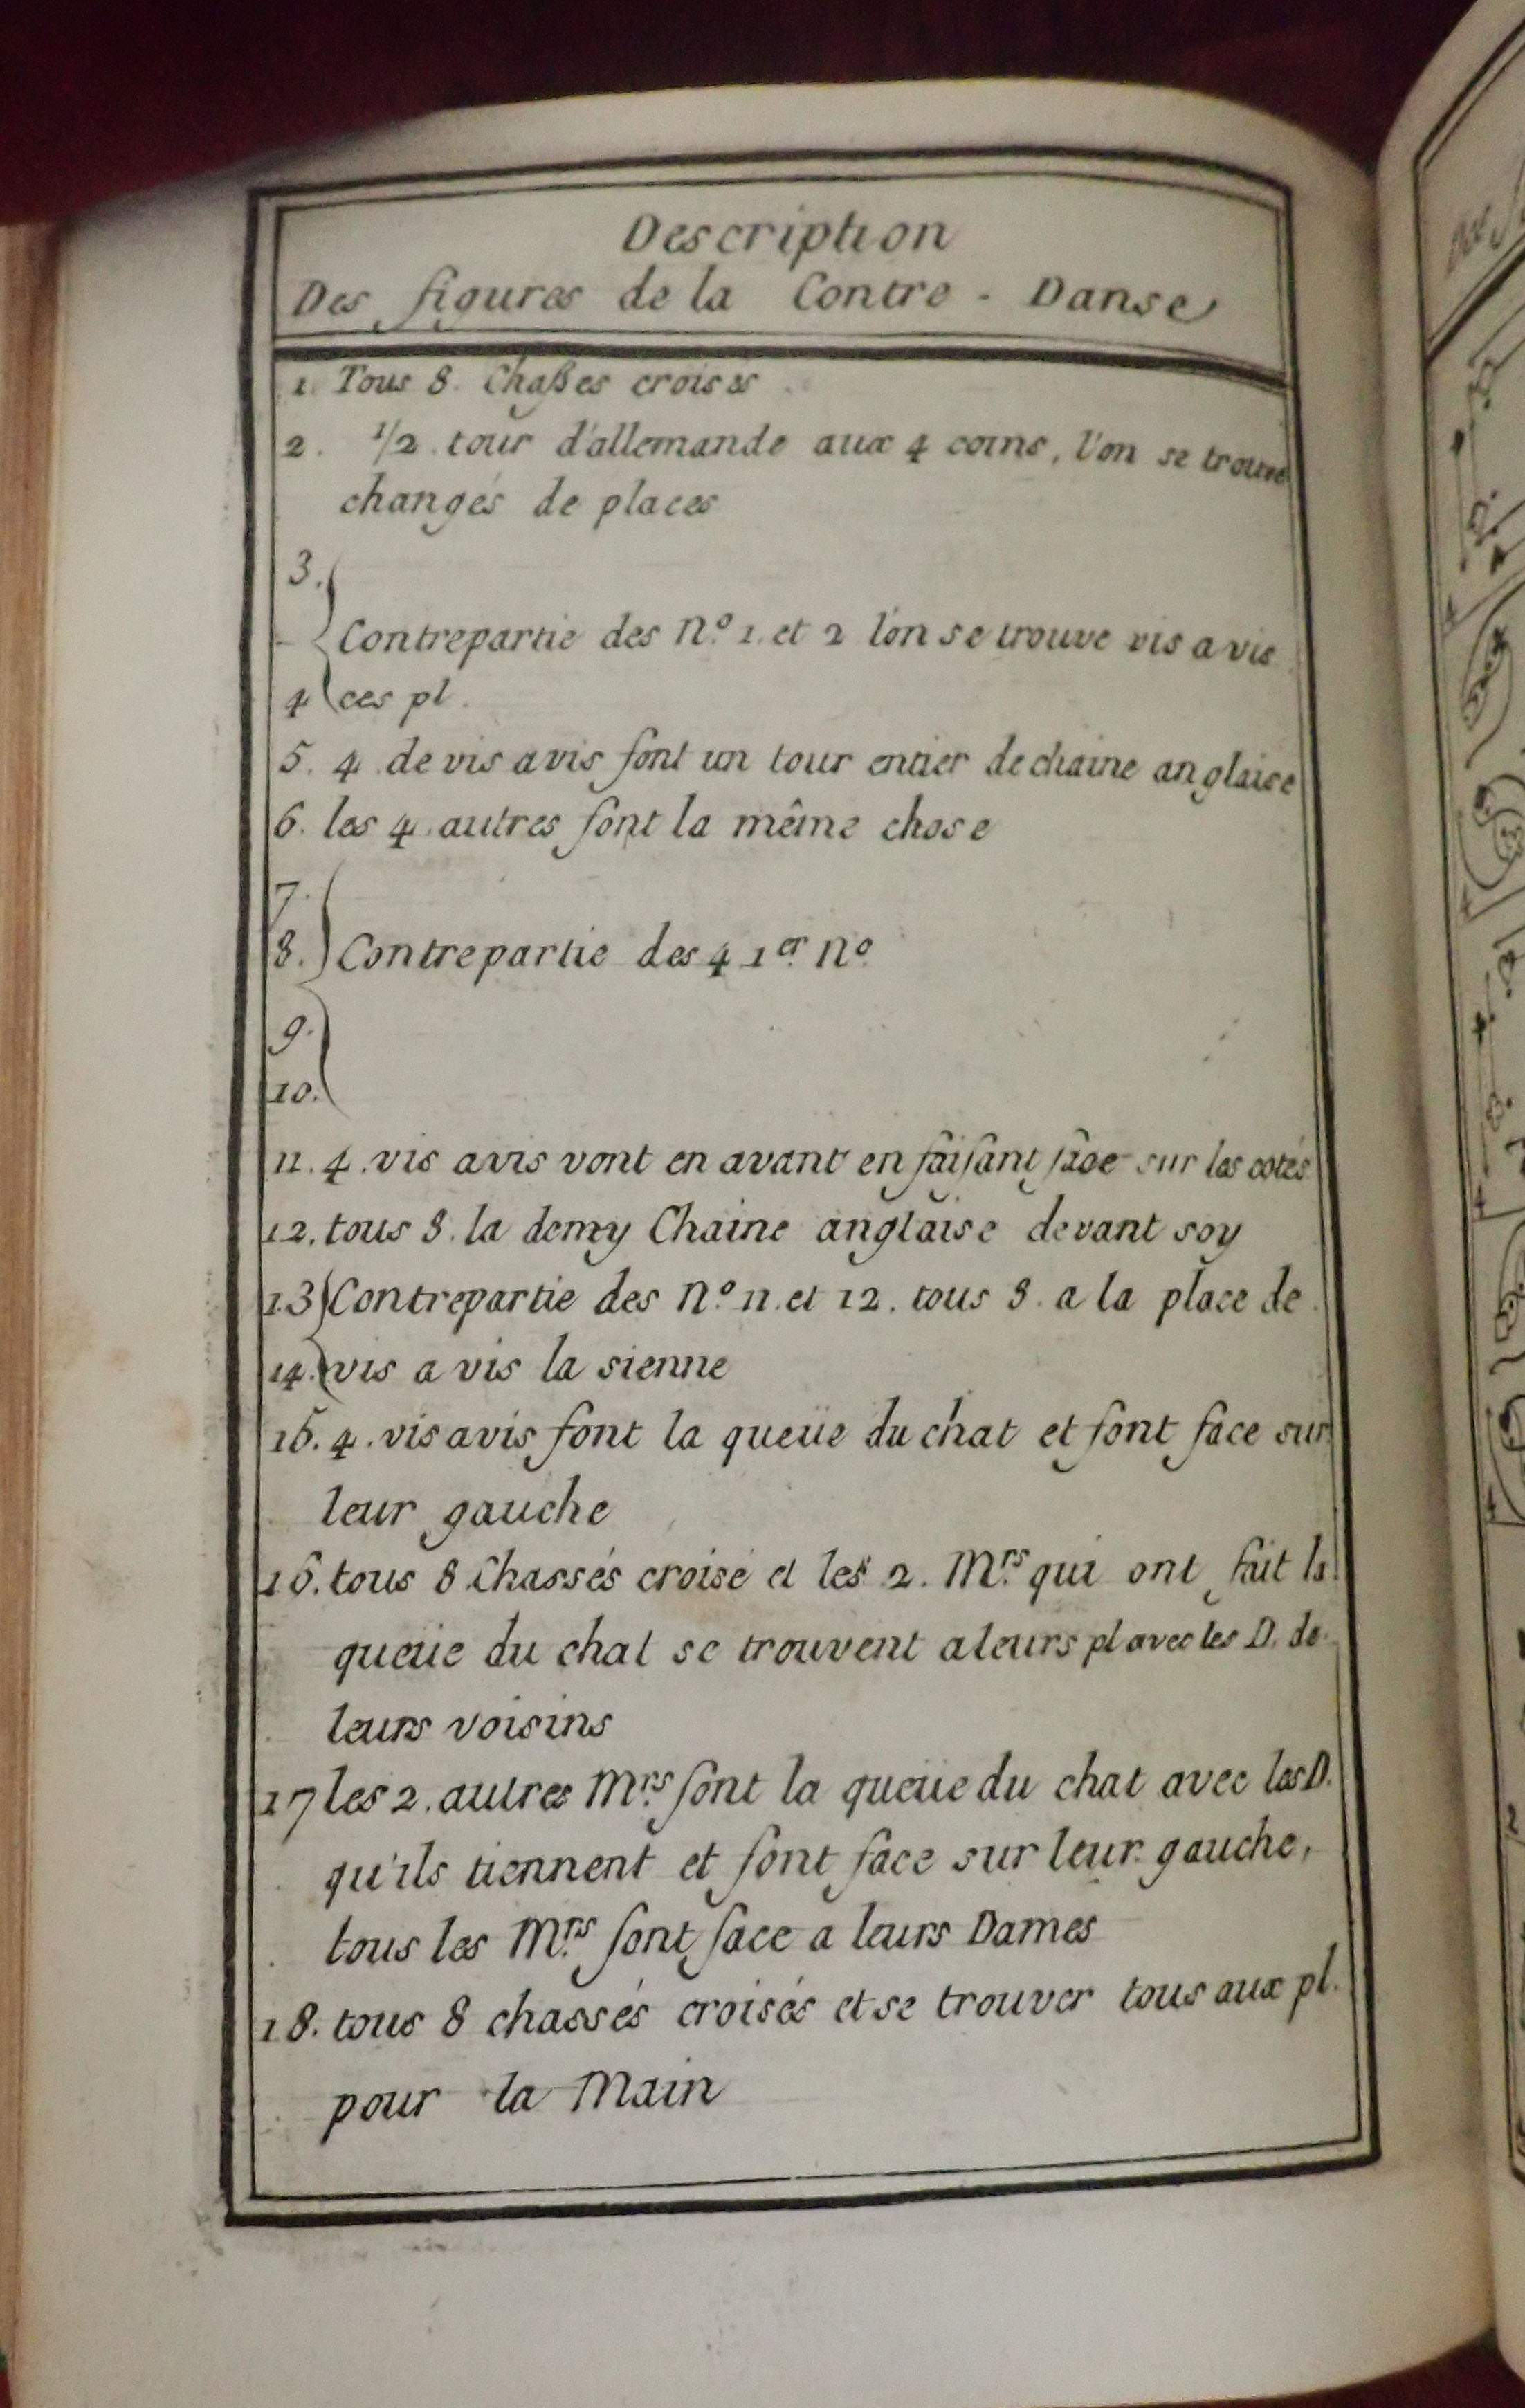 Description
Des figures de la Contre - Danse
1. Tous 8. Chaßes croises
2. 1/2 tour d'allemande aux 4 coins, l'on se trouve
changés de places
3.
Contrepartie des N.º 1. et 2 l'on se trouve vis a vis
4 ces pl.
5. 4 de vis a vis font un tour entier de chaine anglaise
6. les 4 autres font la même chose
7.
8. Contrepartie des 4 1er Nº
9.
10.
11. 4. vis avis vont en avant en faisant face sur les cotés
12. tous 8. la demy Chaine anglaise devant soy
13 Contrepartie des N.º 11. et 12. tous 8. a la place de
14. vis a vis la sienne
15. 4. vis avis font la queüe du chat et font face sur
leur gauche
16. tous 8 Chassés croisé et les 2. Mrs qui ont fait la
queüe du chat se trouvent a leurs pl avec les D. de
leurs voisins
17 les 2. autres Mrs font la queüe du chat avec les D.
qu'ils tiennent et font face sur leur gauche,
tous les Mrs font face a leurs Dames
18. tous 8 chassés croisés et se trouver tous aux pl.
pour la Main